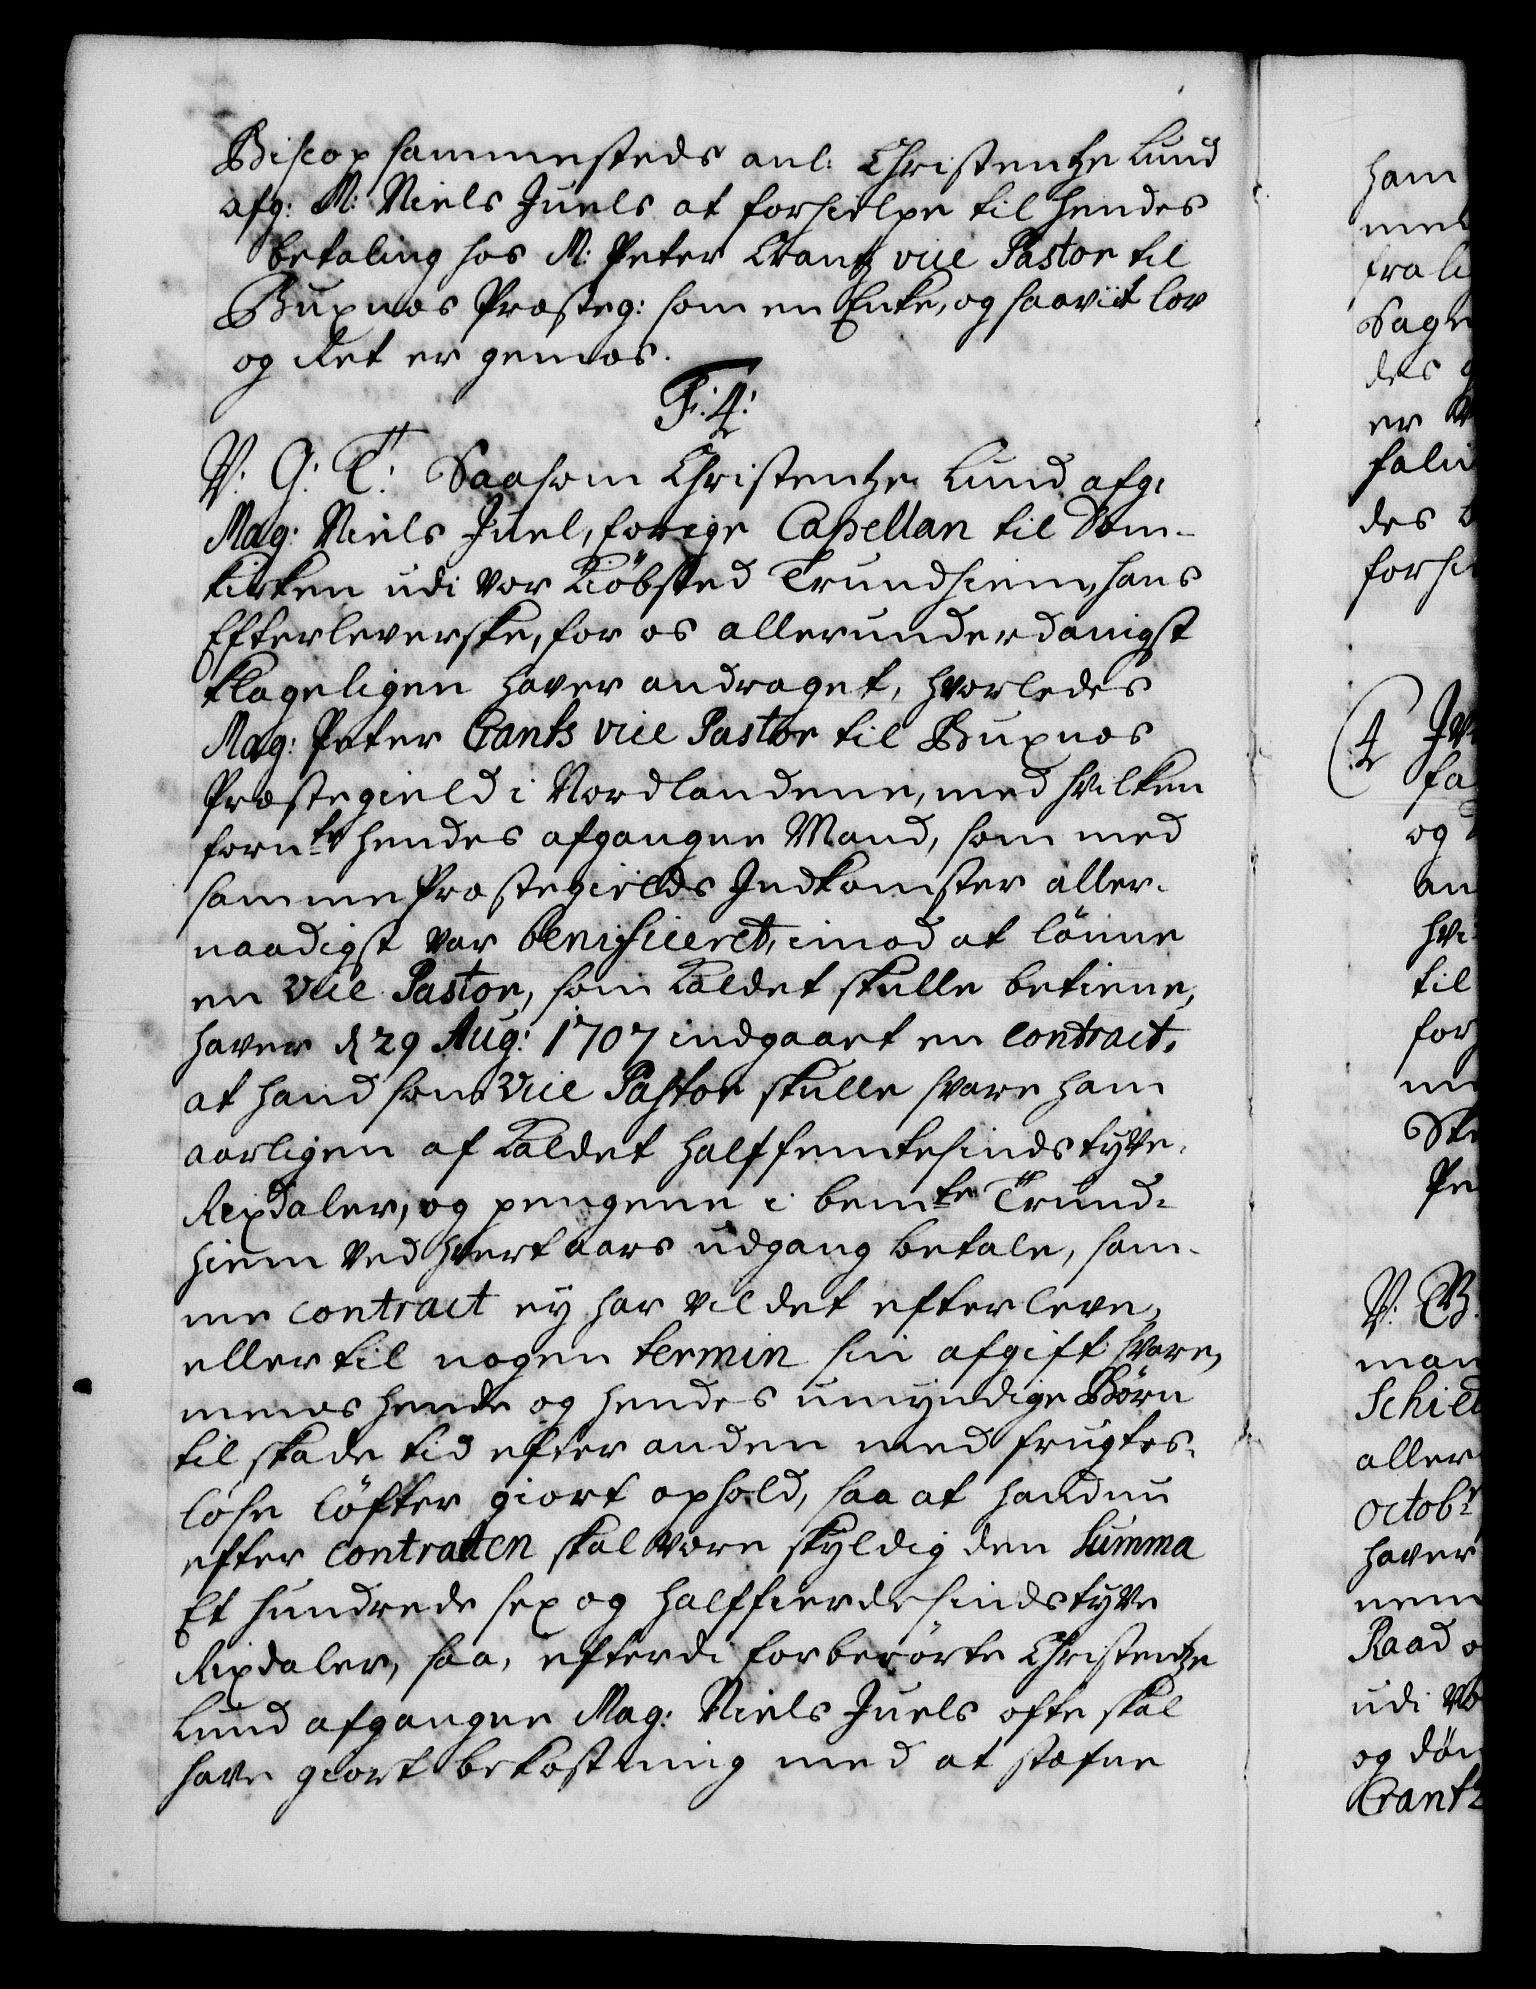 Biscop sammesteds anl: Christentze Lund
afg: M: Niels Juels at forhielpe til hendes
betaling hos M: Peter Crantz vice Pastor til
Buxnæs Præsteg: som en Encke, og saaviit lov
og Ret er gemæs.
F: 4:
V: G: T: Saasom Christentze Lund afg:
Mag: Niels Juel, forige Capellan til Dom-
kirken udi vor Kiöbsted Trundhiem, hans
Efterleverske, for os allerunderdanigst
klageligen haver andraget, hvorledes
Mag: Peter Crants vice Pastor til Buxnæs
Præstegield i Nordlandene, med hvilken
fornte hendes afgangne Mand, som med
samme Præstegields Indkomster aller-
naadigst var beneficeret, imod at lönne
en vice Pastor, som Kaldet skulle betiene,
haver d 29 Aug: 1707 indgaaet en contract,
at hand som vice Pastor skulle svare ham
aarligen af Kaldet halffemtesindstyve
Rixdaler, og pengene i bemte Trund-
hiem ved hvert aars udgang betale, sam-
me contract ey har vildet efterleve,
eller til nogen termin sin afgift svare,
mens hende og hendes umyndige Börn
til skade tid efter anden med frugtes-
löse löfter giort ophold, saa at hand nu
efter contracten skal være skyldig den Summa
Et hundrede sex og halffierdesindstyve
Rixdaler, saa, efterdi forberörte Christentze
Lund afgangne Mag: Niels Juels ofte skal
have giort bekostning med at stæfne
ham
fra
Sag
des
er
des
4
fa
og
an
hvi
til
for
Pe
V:
man
Schield
aller
octobr
haver
nem
Raad o
udi
og döm
Crantz